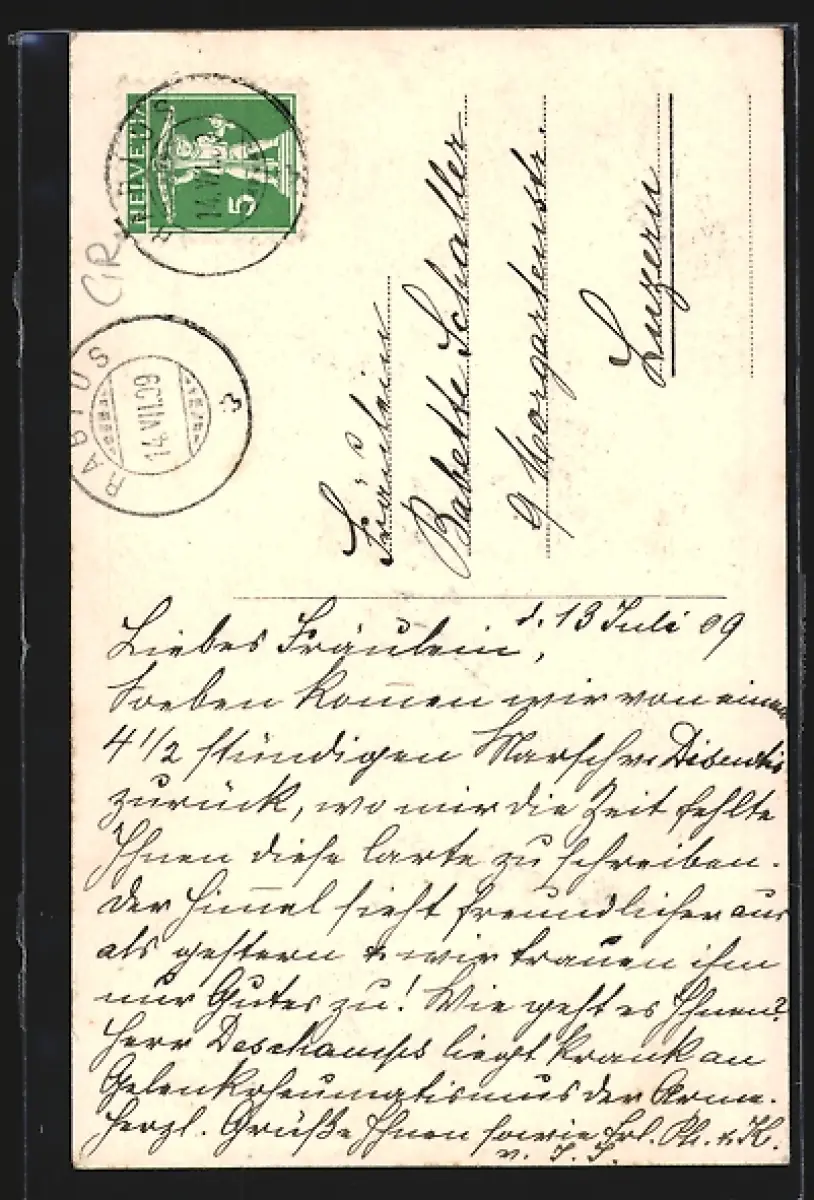 HELVETIA
5
RABIUS
14.VII.09
CiR
RABIUS
14.VII.09
3
Fräulein
Babette Schaller
9 Morgartenstr.
Luzern
d. 13 Juli 09
Liebes Fräulein,
Soeben kom̄en wir von einem
4 1/2 stündigen Marsch v. Disentis
zurück, wo mir die Zeit fehlte
Ihnen diese Carte zu schreiben.
Der Him̄el sieht freundlicher aus
als gestern & wir trauen ihm
nur Gutes zu! Wie geht es Ihnen?
Herr Deschamps liegt krank an
Gelenkrheumatismus der Arme.
Herzl. Grüße Ihnen sowie Frl. Ph. & K.
v. J. J.